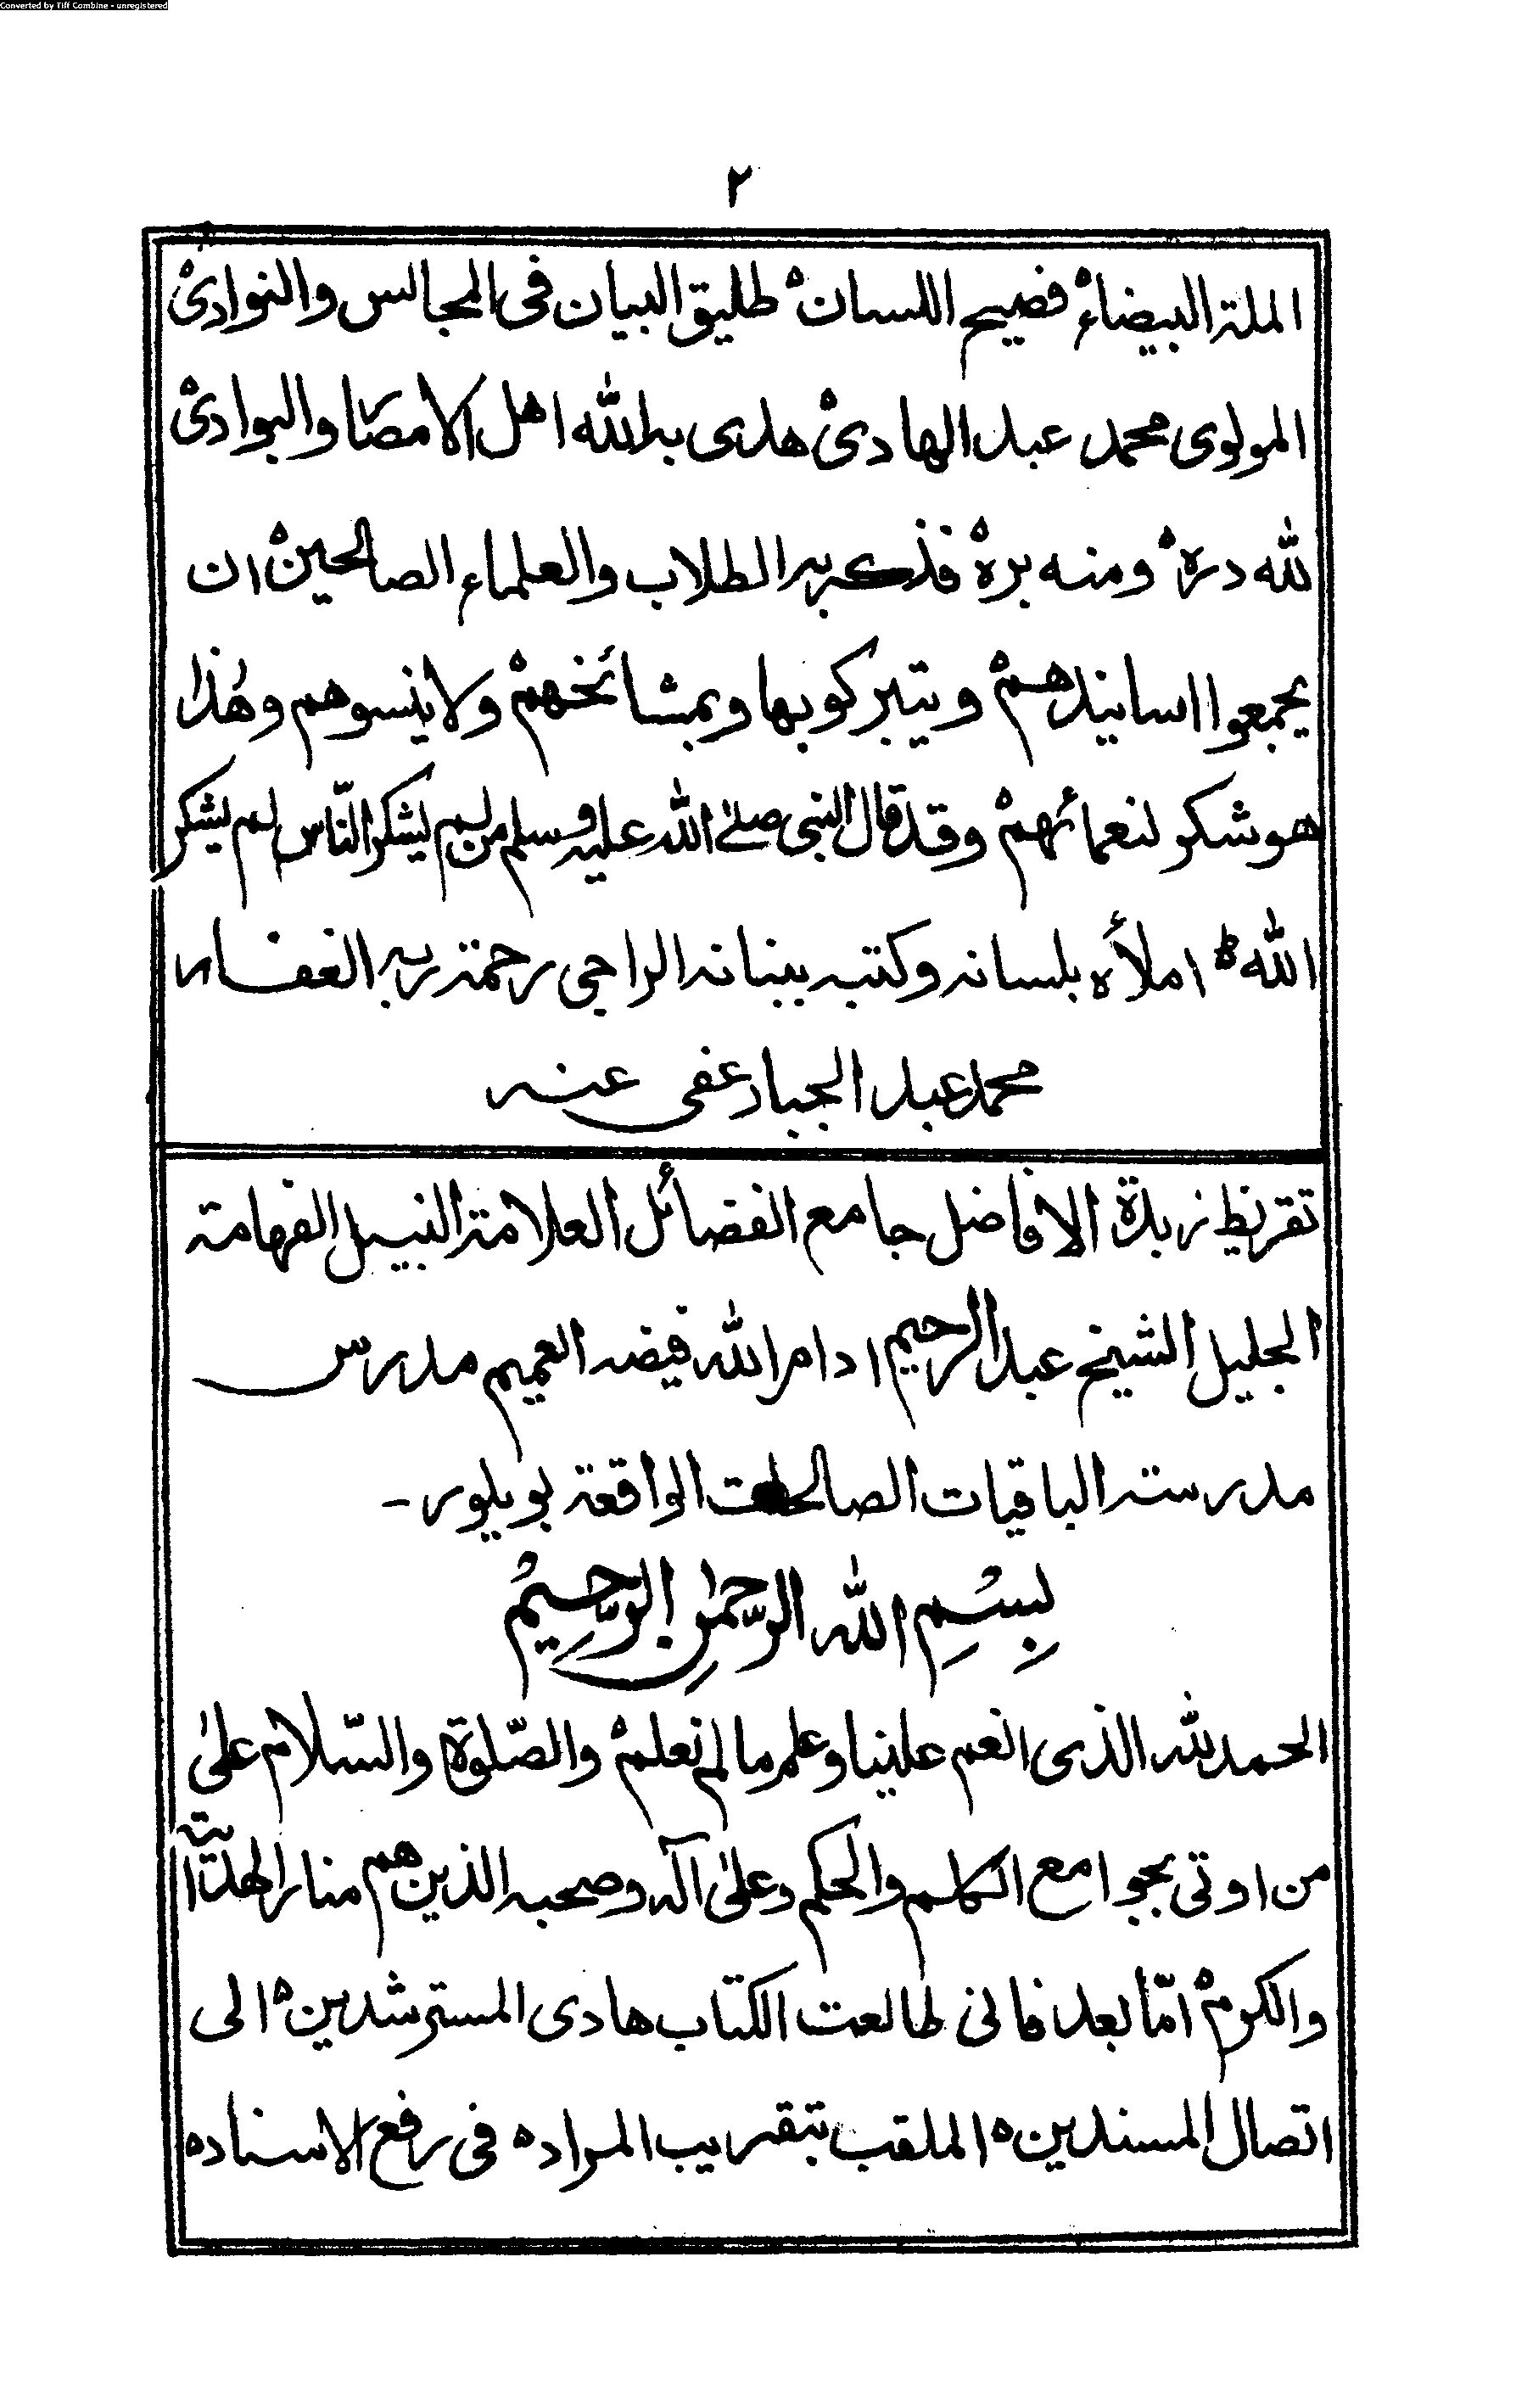 Converted by Tiff Combine - unregistered
٢
الملة البيضاء ہ فصيح اللسان ہ طليق البيان فی المجالس والنوادی ہ
المولوی محمد عبد الهادی ہ هدی به الله اهل الامصار والبوادی ہ
لله دره ہ ومنه بره ہ فذكر به الطلاب والعلماء الصالحين ہ ان
يجمعوا اسانيدهم ہ ويتبركو بها وبمشائخهم ہ ولا ينسوهم وهٰذا
هو شكر لنعمائهم ہ وقد قال النبی صلی الله عليه وسلم من لم يشكر النّاس لم يشكر
الله ط املأه بلسانه وكتبه ببنانه الراجی رحمة ربه الغفار
محمد عبد الجبار عفی عنه
تقريظ زبدة الافاضل جامع الفضائل العلامة النبيل الفهامة
الجليل الشيخ عبد الرحيم ادام الله فيضه العميم مدرس
مدرسته الباقيات الصالحات الواقعة بويلور -
بِسْمِ الله الرّحمٰنِ الرّحِيْمِ
الحمد لله الذی انعم علينا وعلم ما لم نعلم ہ والصّلوة والسّلام علیٰ
من اوتی بجوامع الكلم والحكم وعلیٰ آله وصحبه الذين هم منار الهداية
والكرم ہ امّا بعد فانی طالعت الكتاب هادی المسترشدين ہ الی
اتصال المسندين ہ الملقب بتقريب المراد ہ فی رفع الاسناد ہ